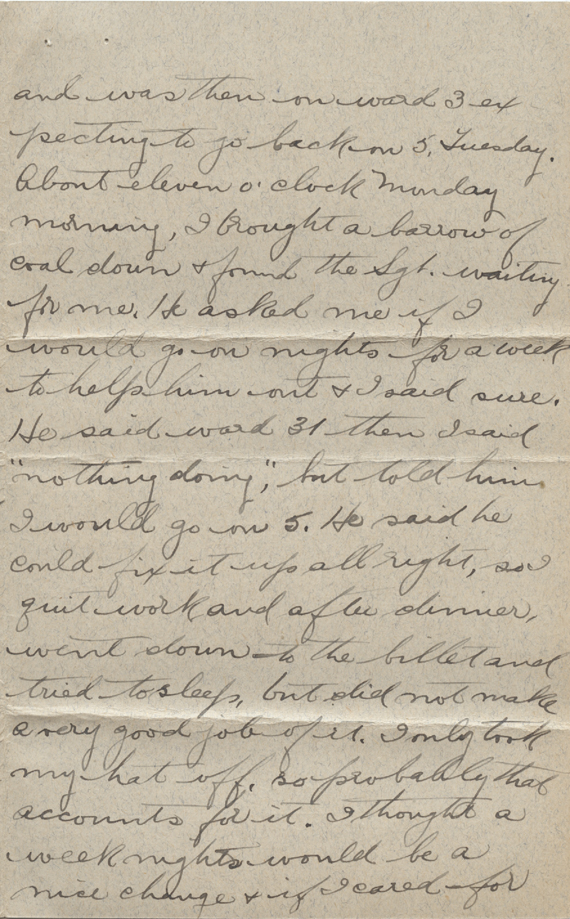 and was then on ward 3 ex
pecting to go back on 5, Tuesday.
About eleven o'clock Monday
morning, I brought a barrow of
coal down & found the Sgt. waiting
for me. He asked me if I
would go on nights for a week
to help him out & I said sure.
He said ward 31 then I said
"nothing doing", but told him
I would go on 5. He said he
could fix it up all right, so I
quit work and after dinner,
went down to the billet and
tried to sleep, but did not make
a very good job of it. I only took
my hat off, so probably that
accounts for it. I thought a
week nights would be a
nice change & if I cared for